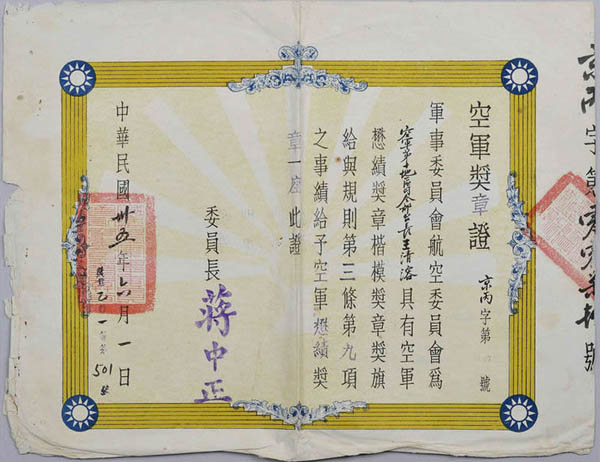 京丙字第號
空軍獎章證
京丙字第 號
軍事委員會航空委員會為
空軍第十地區司令部長王清溶具有空軍
懋績獎章楷模獎章獎旗
給與規則第三條第九項
之事績給予空軍懋績獎
章一座此證
委員長 蔣中正
中華民國卅五年六月一日
501